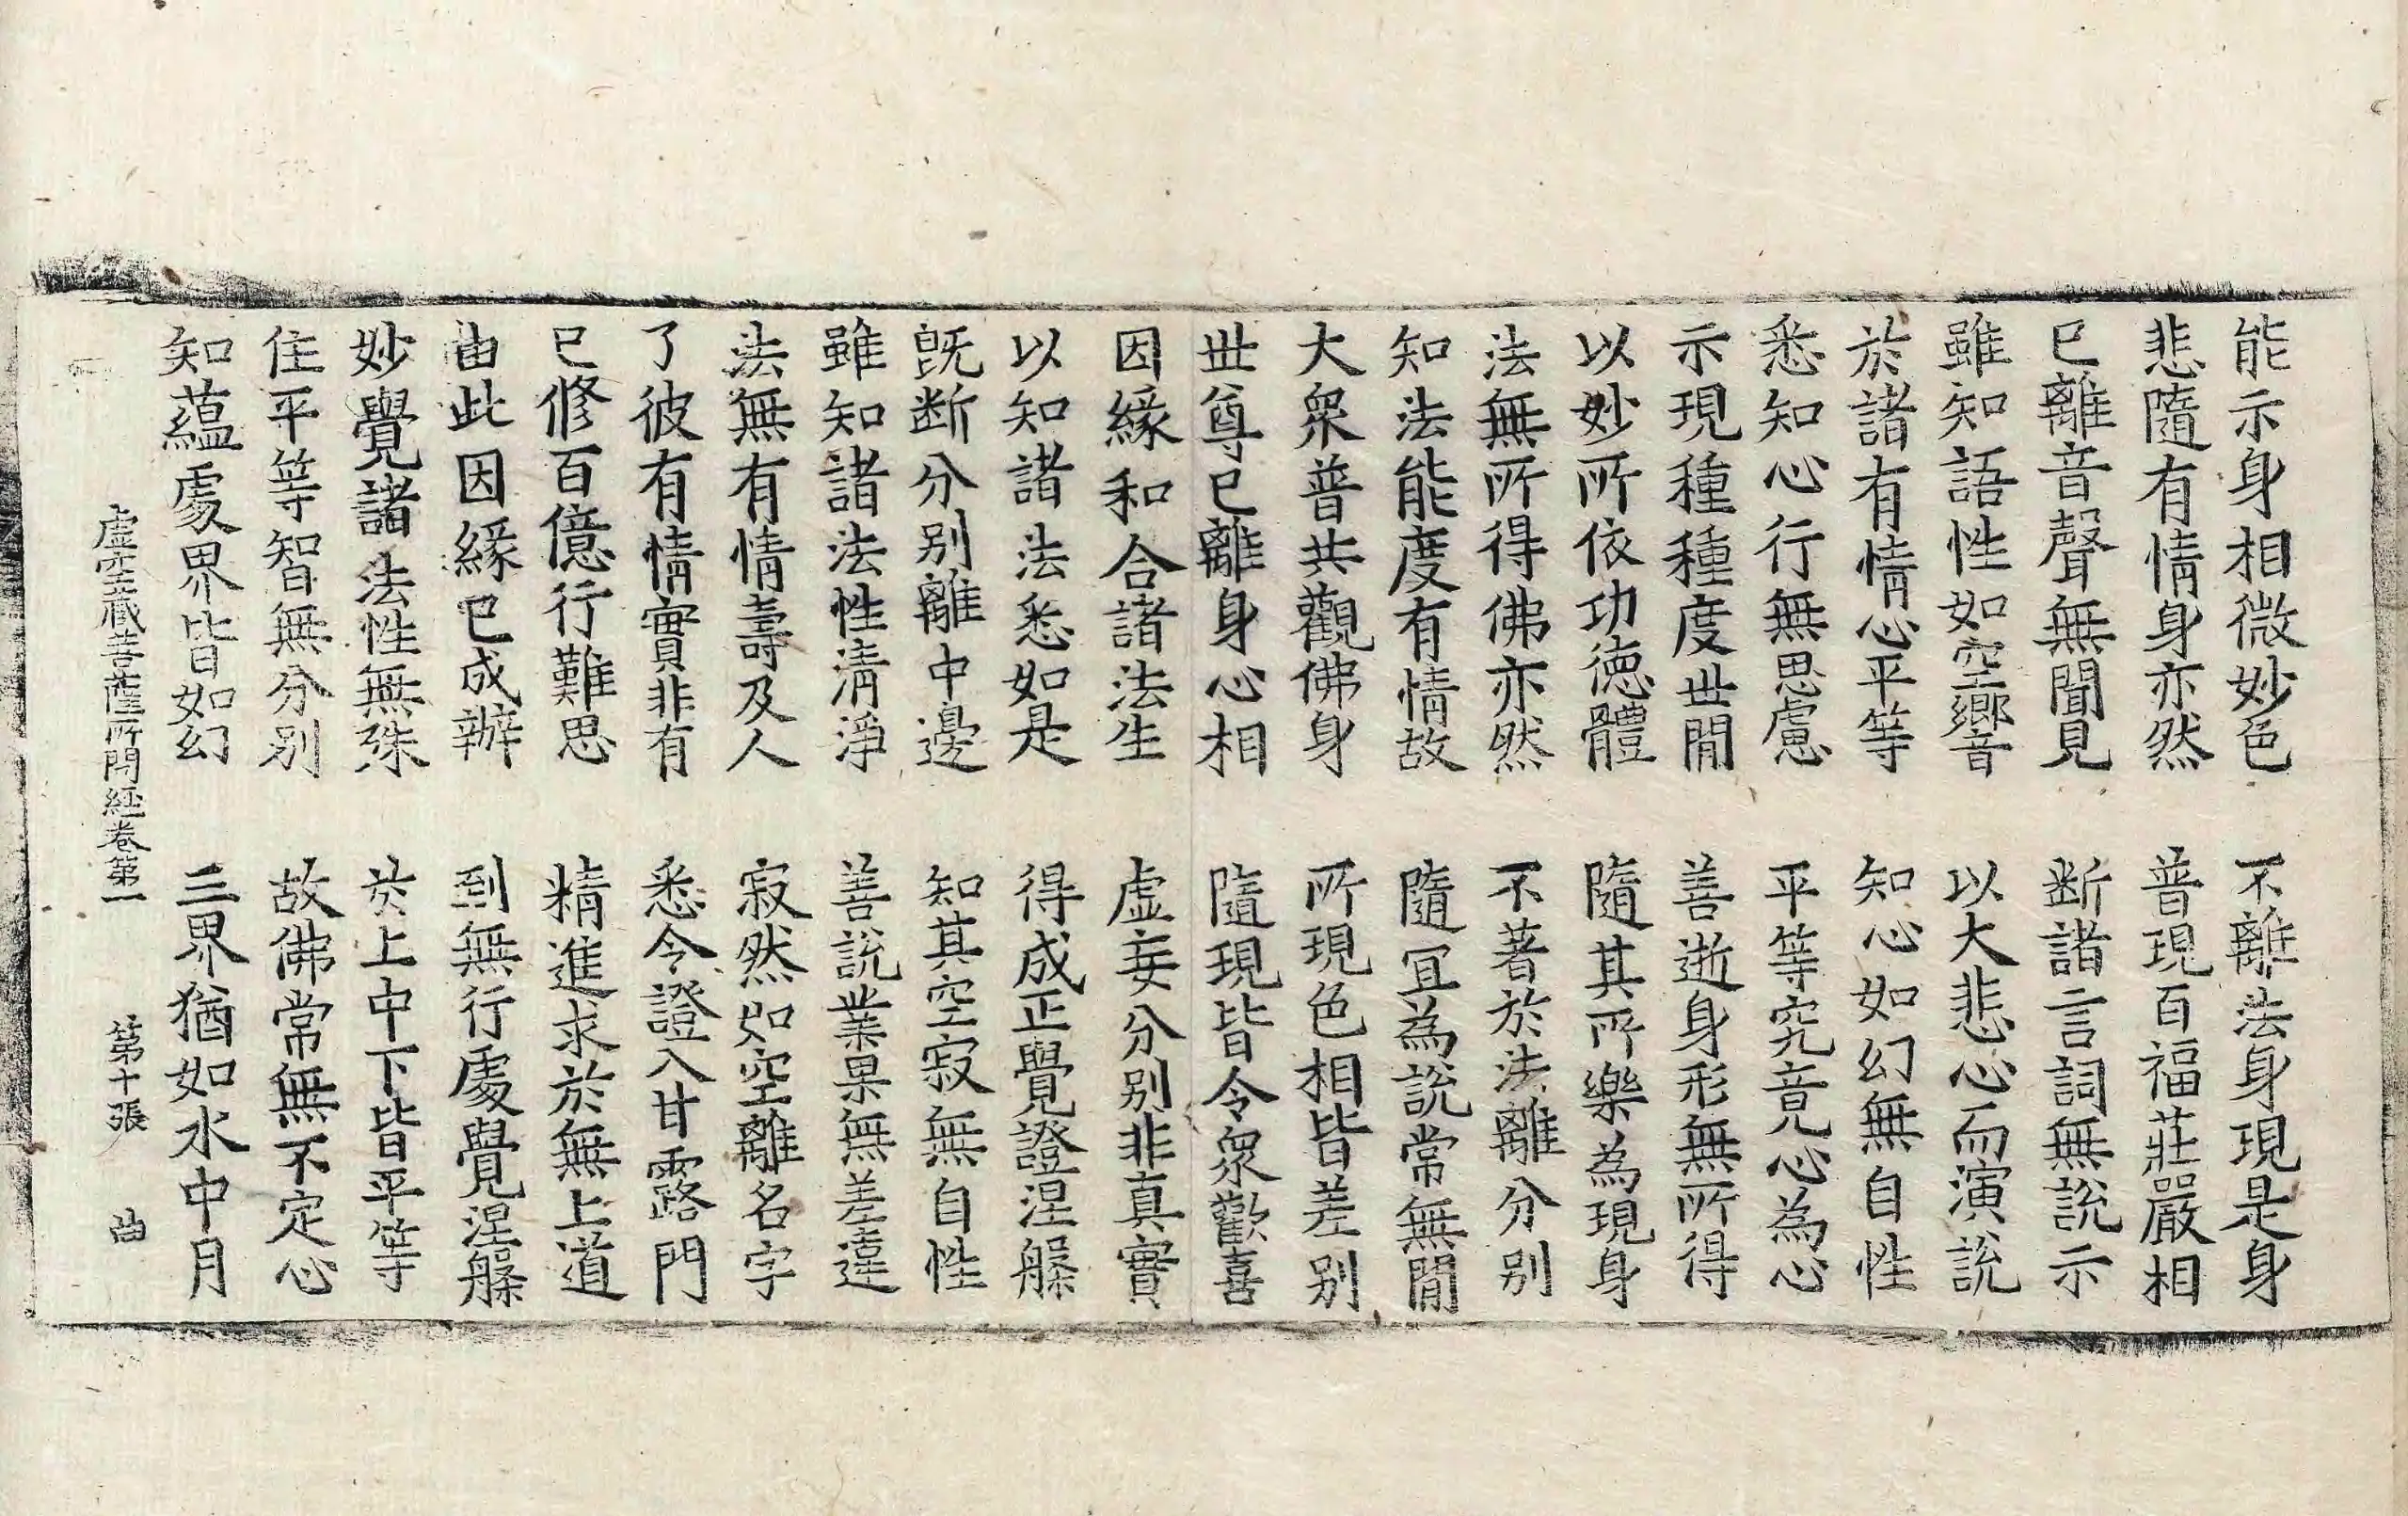 能示身相微妙色 不離法身現是身
悲隨有情身亦然 普現百福莊嚴相
已離音聲無聞見 断諸言詞無說示
雖知語性如空響 以大悲心而演說
於諸有情心平等 知心如幻無自性
悉知心行無思慮 平等究竟心為心
示現種種度世間 善逝身形無所得
以妙所依功德體 隨其所樂為現身
法無所得佛亦然 不著於法離分別
知法能度有情故 隨冝為說常無間
大衆普共觀佛身 所現色相皆差別
世尊已離身心相 隨現皆令衆歡喜
因緣和合諸法生 虛妄分別非真實
以知諸法悉如是 得成正覺證涅槃
旣断分別離中邊 知其空寂無自性
雖知諸法性清淨 善說業果無差違
法無有情壽及人 寂然如空離名字
了彼有情實非有 悉令證入甘露門
已修百億行難思 精進求於無上道
由此因緣已成辦 到無行處覺涅槃
妙覺諸法性無殊 於上中下皆平等
住平等智無分別 故佛常無不定心
知蘊處界皆如幻 三界猶如水中月
虛空藏菩薩所問經卷第一 第十張